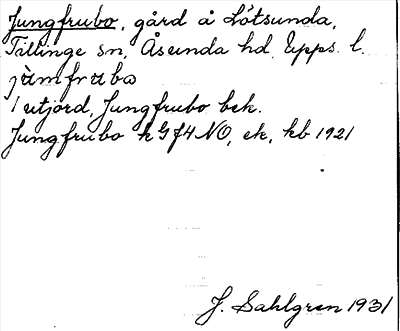 Jungfrubo, gård å Lötsunda,
Tillinge sn, Åsunda hd, Upps. l.
jùmfruba
1 utjord, Jungfrubo bek.
Jungfrubo k GJ4 NO, ek, kb 1921
J. Sahlgren 1931